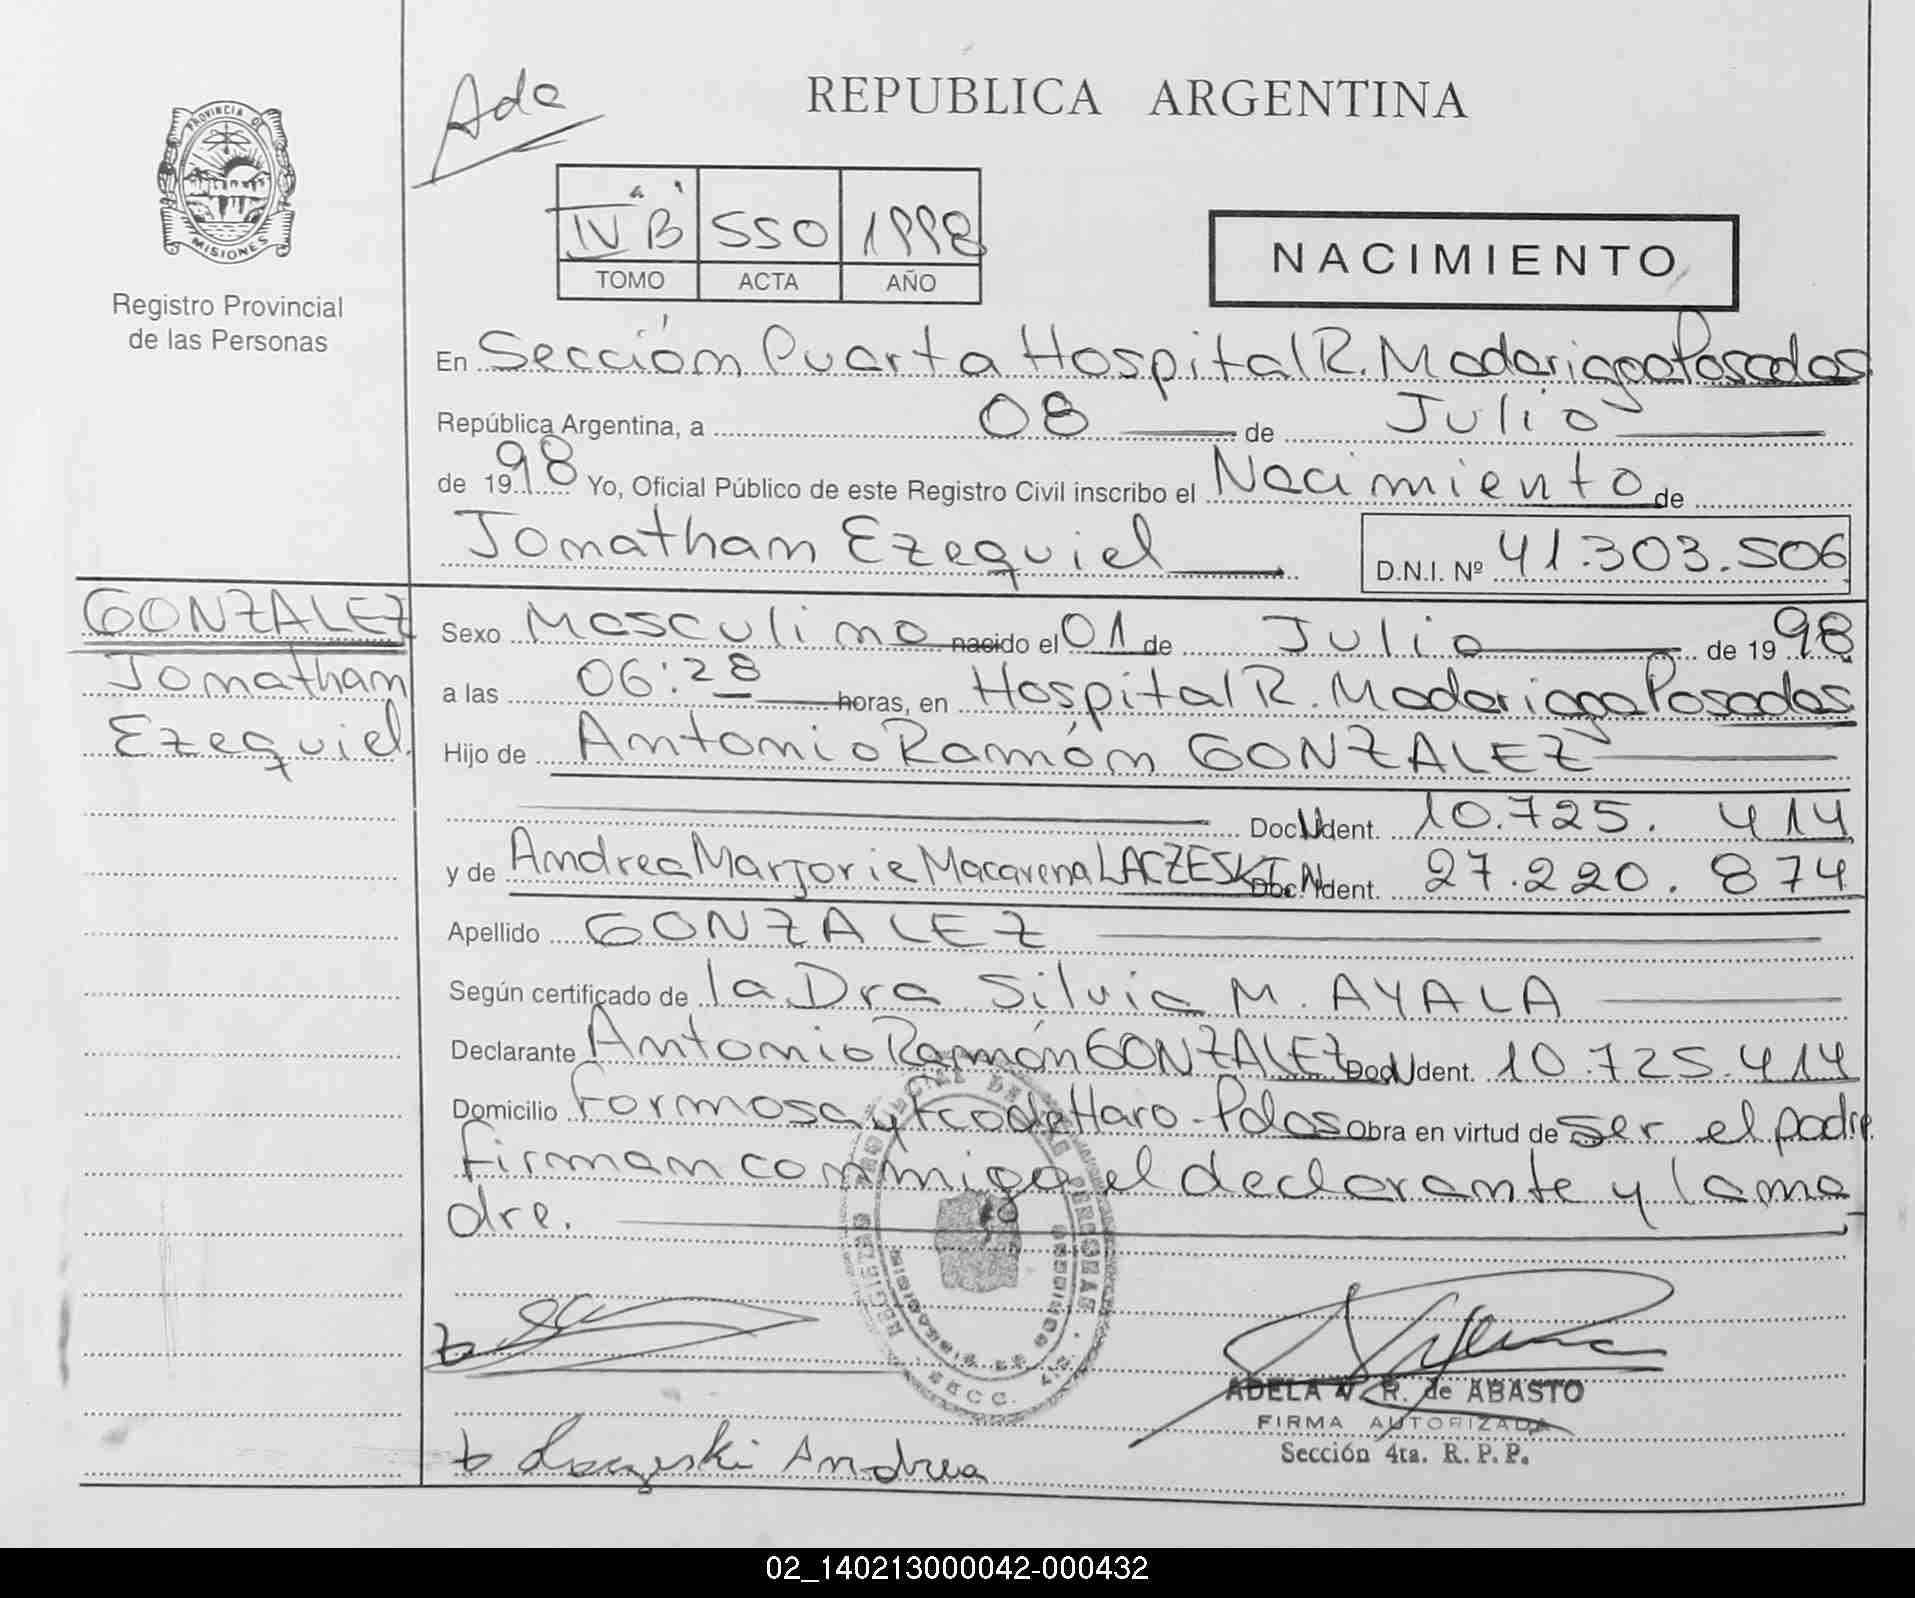 Ada
REPUBLICA ARGENTINA
PROVINCIA DE
MISIONES
Registro Provincial
de las Personas
IV "B" 550 1998
TOMO ACTA AÑO
NACIMIENTO
En Sección Cuarta Hospital R. Madariaga Posadas
República Argentina, a 08 de Julio
de 1998 Yo, Oficial Público de este Registro Civil inscribo el Nacimiento de
Jonathan Ezequiel D.N.I. Nº 41.303.506
GONZALEZ
Jonathan
Ezequiel.
Sexo Masculino nacido el 01 de Julio de 1998
a las 06:28 horas, en Hospital R. Madariaga Posadas
Hijo de Antonio Ramón GONZALEZ
Doc. Ident. 10.725.414
y de Andrea Marjorie Macarena LACZESKI Doc. Ident. 27.220.874
Apellido GONZALEZ
Según certificado de la Dra Silvia M. AYALA
Declarante Antonio Ramón GONZALEZ Doc. Ident. 10.725.414
Domicilio Formosa y Fco de Haro - Pdas Obra en virtud de ser el padre
firman conmigo el declarante y la ma
dre.
ADELA V. R. de ABASTO
FIRMA AUTORIZADA
Sección 4ta. R. P. P.
Laczeski Andrea
02_140213000042-000432